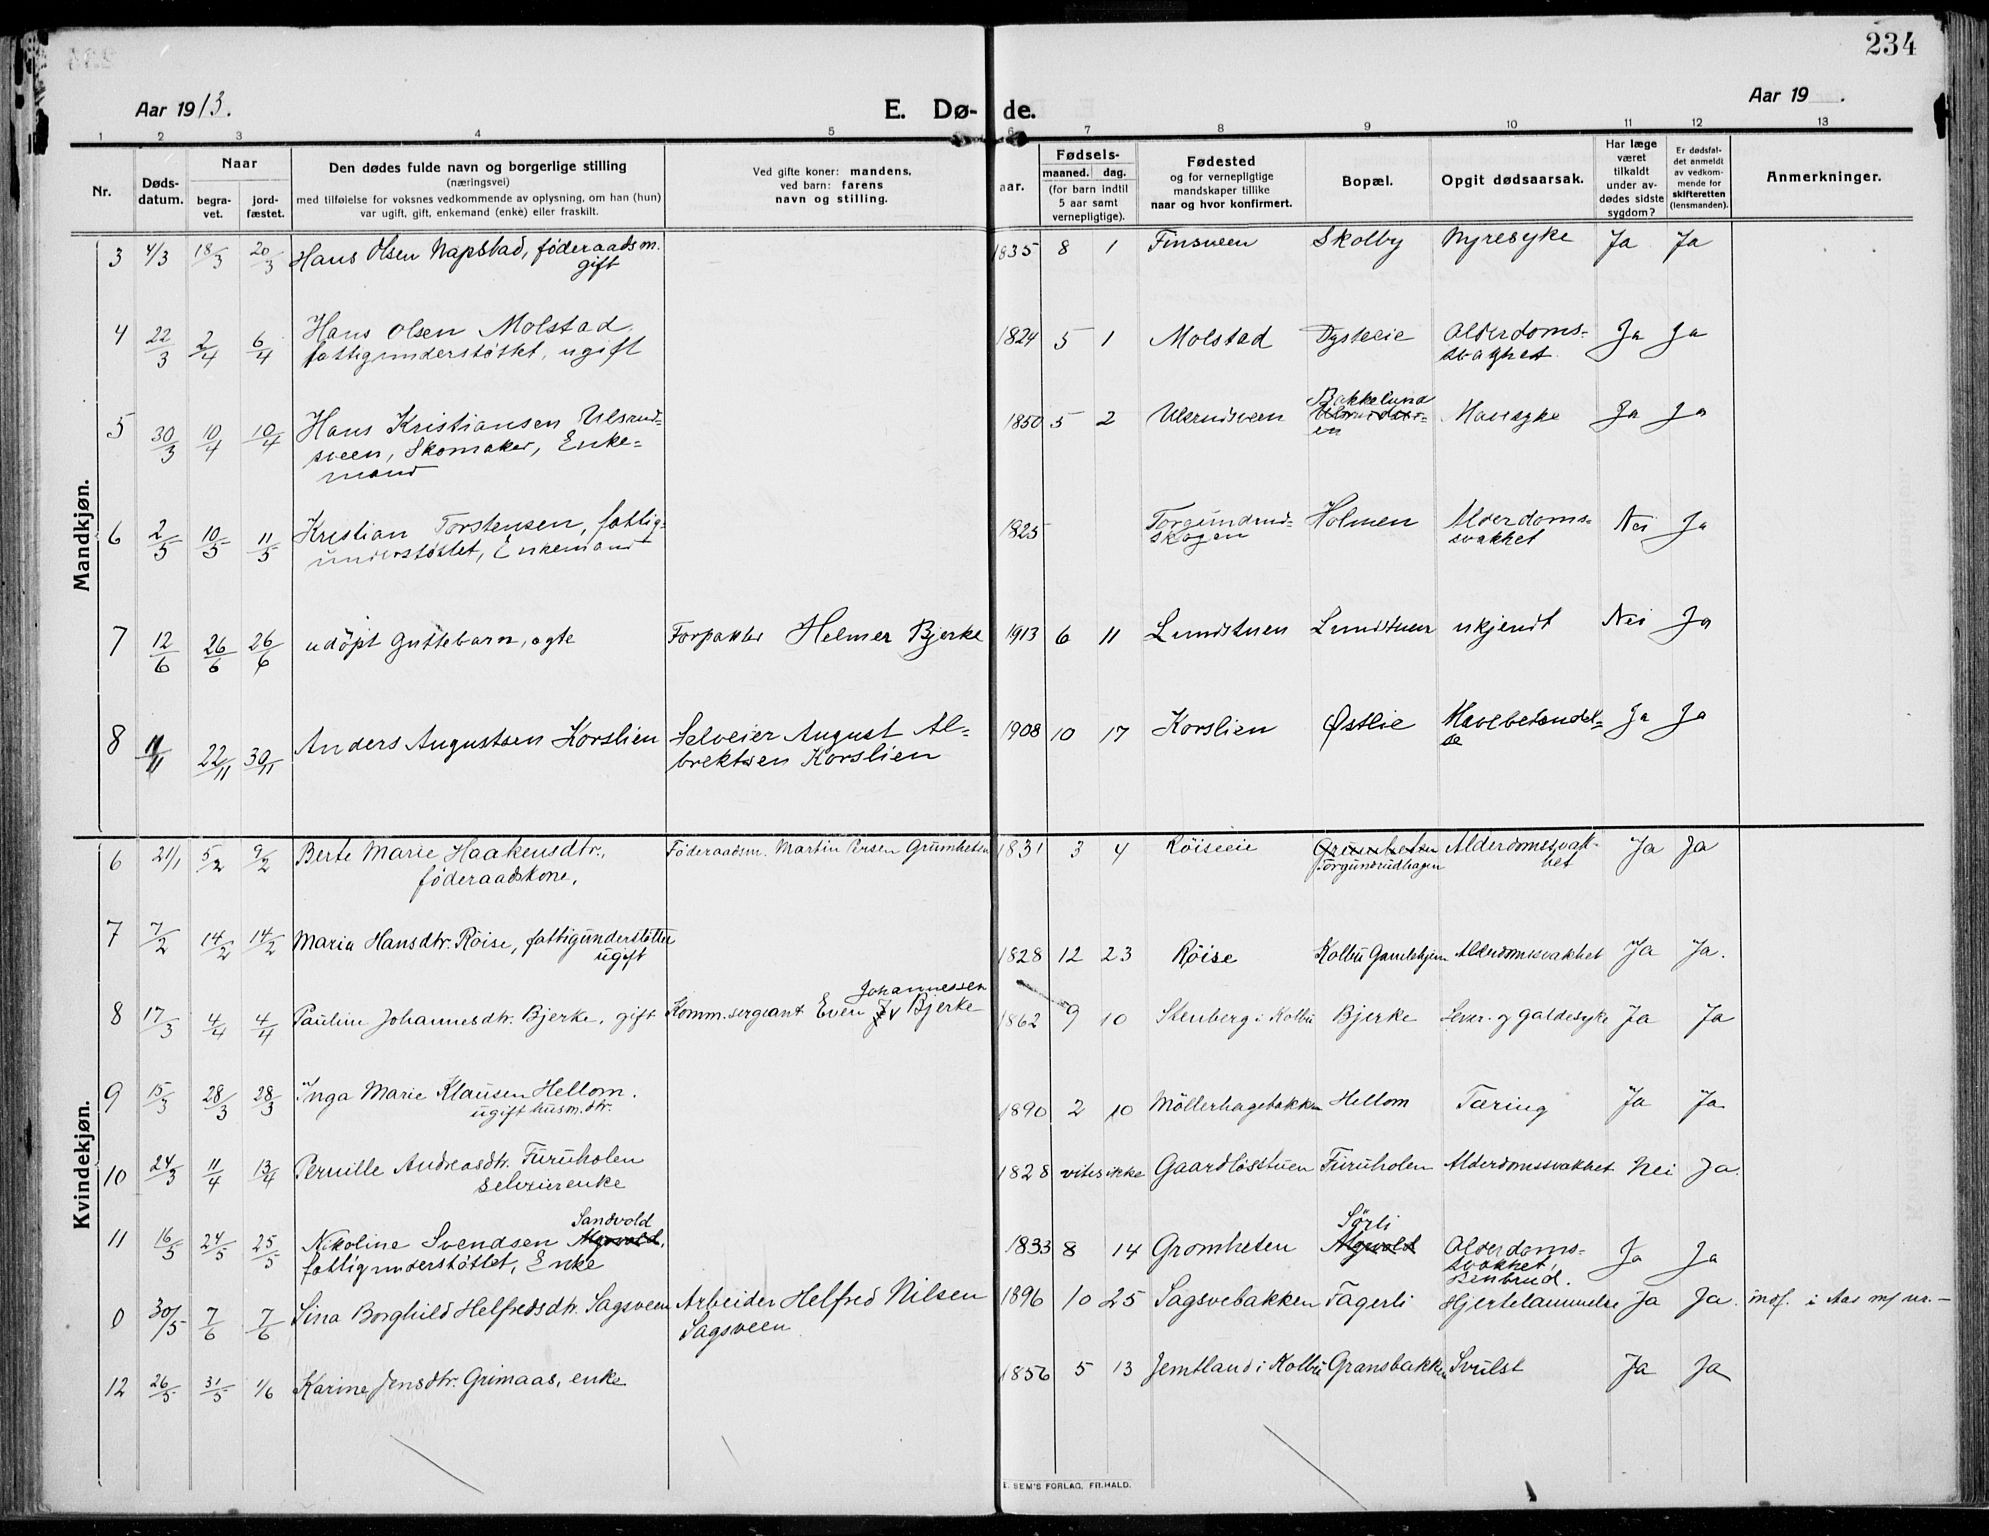 234
Aar 1913.
E. Dø-
de.
Aar 19 .
1 2 3 4 5 6 7 8 9 10 11 12 13
Nr.
Døds-
datum.
Naar
begra-
vet.
jord-
fæstet.
Den dødes fulde navn og borgerlige stilling
(næringsvei)
med tilføielse for voksnes vedkommende av oplysning, om han (hun)
var ugift, gift, enkemand (enke) eller fraskilt.
Ved gifte koner: mandens,
ved barn: farens
navn og stilling.
Fødsels-
aar.
maaned. dag.
(for barn indtil
5 aar samt
vernepligtige).
Fødested
og for vernepligtige
mandskaper tillike
naar og hvor konfirmert.
Bopæl.
Opgit dødsaarsak.
Har læge
været
tilkaldt
under av-
dødes sidste
sygdom?
Er dødsfal-
det anmeldt
av vedkom-
mende for
skifteretten
(lensmanden).
Anmerkninger.
Mandkjøn.
3 4/3 18/3 20/3 Hans Olsen Napstad, føderaadsm. 1835 8 1 Finsveen Skolby Nyresyke Ja Ja
gift
4 22/3 2/4 6/4 Hans Olsen Molstad, 1824 5 1 Molstad Dysteeie Alderdoms- Ja Ja
fattigunderstøttet, ugift svaghet.
Bakkelund
5 30/3 10/4 10/4 Hans Kristiansen Ulsrud- 1850 5 2 Ulsrudsveen Ulsrudsve- Mavesyke Ja Ja
sveen, Skomaker, Enke- en
mand
6 2/5 10/5 11/5 Kristian Torstensen, fattig- 1825 Torgundrud- Holmen Alderdoms- Nei Ja
understøttet, Enkemand skogen svakhet
7 12/6 26/6 26/6 udøpt guttebarn, egte Forpakter Helmer Bjerke 1913 6 11 Lundstuen Lundstuen ukjendt Nei Ja
8 11/11 22/11 30/11 Anders Augustsen Korslien Selveier August Al- 1908 10 17 Korslien Østlie Mavebetændel- Ja Ja
brektsen Korslien se
Kvindekjøn.
6 21/1 5/2 9/2 Berte Marie Haakensdtr., Føderaadsm. Martin Persen Grumheten 1831 3 4 Røiseeie Grumheten Alderdomssvak- Ja Ja
føderaadskone, Torgundrudhagen het
7 7/2 14/2 14/2 Maria Hansdtr. Røise, fattigunderstøttet 1828 12 23 Røise Kolbu Gamlehjem Alderdomssvakhet Ja Ja.
ugift
Johannessen
8 17/3 4/4 4/4 Pauline Johannesdtr. Bjerke, gift Komm.sergeant Even J. Bjerke 1862 9 10 Stenberg i Kolbu Bjerke Lever- og galdesyke Ja Ja
9 15/3 28/3 28/3 Inga Marie Klausen Hellom. 1890 2 10 Möllerhagebakken Hellom Tæring Ja Ja
ugift husm.dtr.
10 24/3 11/4 13/4 Pernille Andreasdtr. Furuholen 1828 vites ikke Gaardløsstuen Furuholen Alderdomssvakhet Nei Ja.
selveierenke
Sandvold Sørli
11 16/5 24/5 25/5 Nikoline Svendsen Movold, 1833 8 14 Gromheten Movold Alderdoms- Ja Ja
fattigunderstøttet, Enke svakhet,
Benbrud.
0 30/5 7/6 7/6 Sina Borghild Helfredsdtr. Sagsveen Arbeider Helfred Nilsen 1896 10 25 Sagsvebakken Fagerli Hjertelammelse Ja Ja. indf. i Aas m/ nr. —
Sagsveen
12 26/5 31/5 1/6 Karine Jensdtr. Grimaas, enke 1856 5 13 Jemtland i Kolbu Gransbakken Svulst Ja Ja
E. SEM'S FORLAG, FR.HALD.